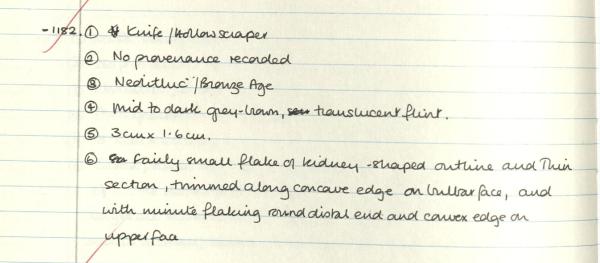 -1182. ① Knife/Hollowscraper
② No provenance recorded
③ Neolithic/Bronze Age
④ Mid to dark grey-brown, translucent flint.
⑤ 3cm x 1.6cm.
⑥ Fairly small flake of kidney-shaped outline and thin
section, trimmed along concave edge on bulbar face, and
with minute flaking round distal end and convex edge on
upper face